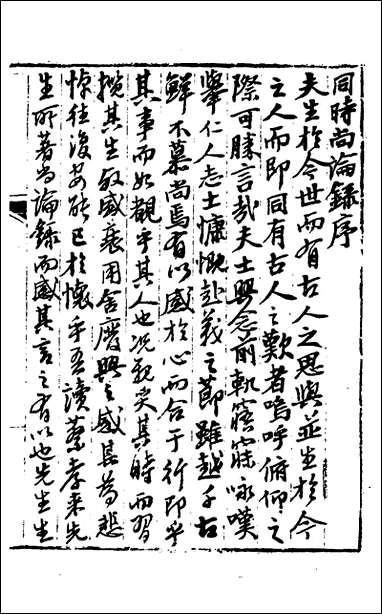 同時尚論錄序
夫生於今世而有古人之思與並生於今
之人而即同有古人之歎者嗚呼俯仰之
際可勝言哉夫士興念前軌寤寐咏嘆
舉仁人志士慷慨赴義之節雖越千古
鮮不慕尚焉有以感於心而合于行即乎
其事而如觀乎其人也况親炙其時而習
攬其生故盛衰用舍廢興之感甚為悲
悼往復安能已於懷乎吾讀蔡孝來先
生所著尚論錄而感其言之有以也先生生